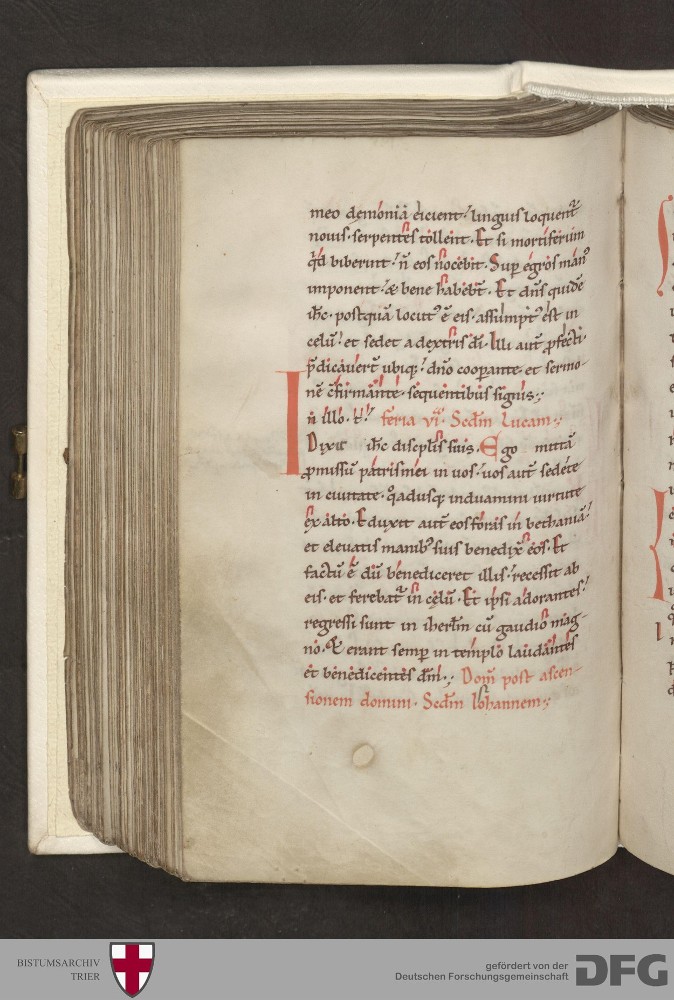 meo demoniā eicient: linguis loquent᷑
nouis. serpentes tollent. Et si mortiferum
q̄d biberint: n̄ eos nocebit. Sup̱ egros man᷒
imponent: & bene habebt̄. Et dn̄s quidē
ih̄c. postquā locut᷒ ē eis. assumpt᷒ est in
celū: et sedet a dextris dī. Illi aut̄ ꝓfecti
p̄dicauert̄ ubiq;: dn̄o cooperante et sermo-
nē c̄firmante. sequentibus signis.
In illo. t̄. feria vi. Scd̄m Lucam.
Dixit ih̄c discipl̄is suis. Ego mittā
ꝓmissū patris mei in uos: uos aut̄ sedete
in ciuitate. qadusq; induamini uirtute
ex alto. Eduxit aut̄ eos foras in bethaniā:
et eleuatis manib᷒ suis benedix̄ eos. Et
factū ē dū benediceret illis: recessit ab
eis. et ferebat᷑ in celū. Et ipsi adorantes:
regressi sunt in iherl̄m cū gaudio mag-
no. Et erant semp̱ in templo laudantes
et benedicentes dm̄. Dom̄ post ascen-
sionem domini. Scd̄m Iohannem.
BISTUMSARCHIV
TRIER
gefördert von der
Deutschen Forschungsgemeinschaft
DFG